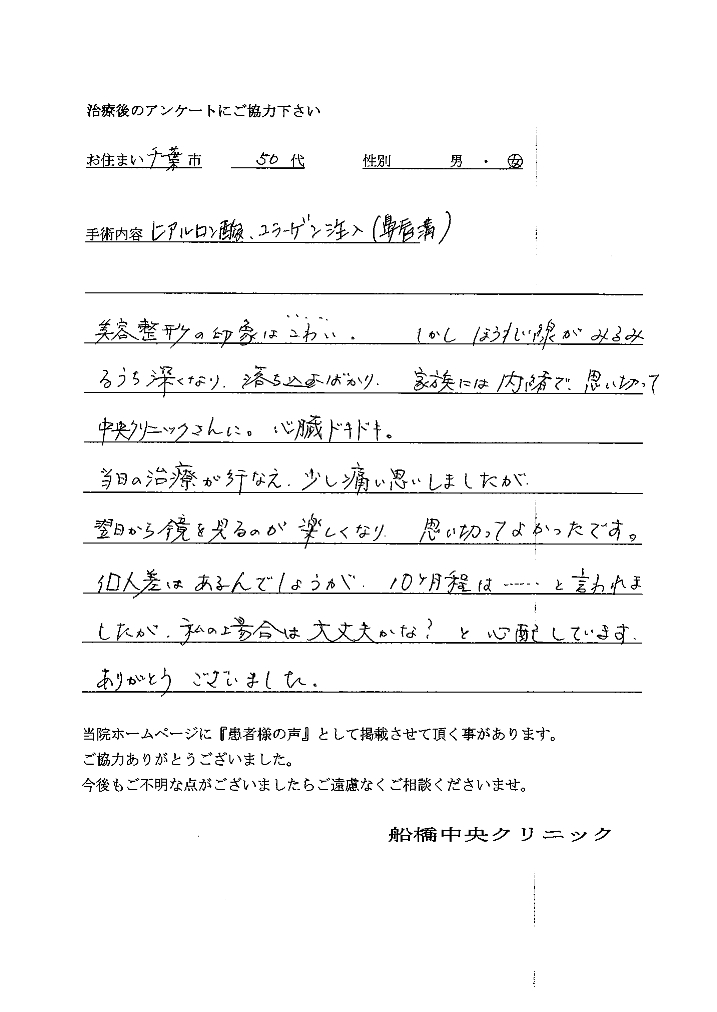 治療後のアンケートにご協力下さい
お住まい 千葉 市 50 代 性別 男 ・ 女
手術内容 ヒアルロン酸、コラーゲン注入(鼻唇溝)
美容整形の印象はこわい。 しかし ほうれい線が みるみ
るうち深くなり、落ち込むばかり、 家族には内緒で、思い切って
中央クリニックさんに。心臓ドキドキ。
当日の治療が行なえ、少し痛い思いしましたが、
翌日から鏡を見るのが楽しくなり、 思い切ってよかったです。
個人差は あるんでしょうが、10ヶ月程は…… と言われま
したが、私の場合は大丈夫かな? と 心配しています。
ありがとう ございました。
当院ホームページに『患者様の声』として掲載させて頂く事があります。
ご協力ありがとうございました。
今後もご不明な点がございましたらご遠慮なくご相談くださいませ。
船橋中央クリニック